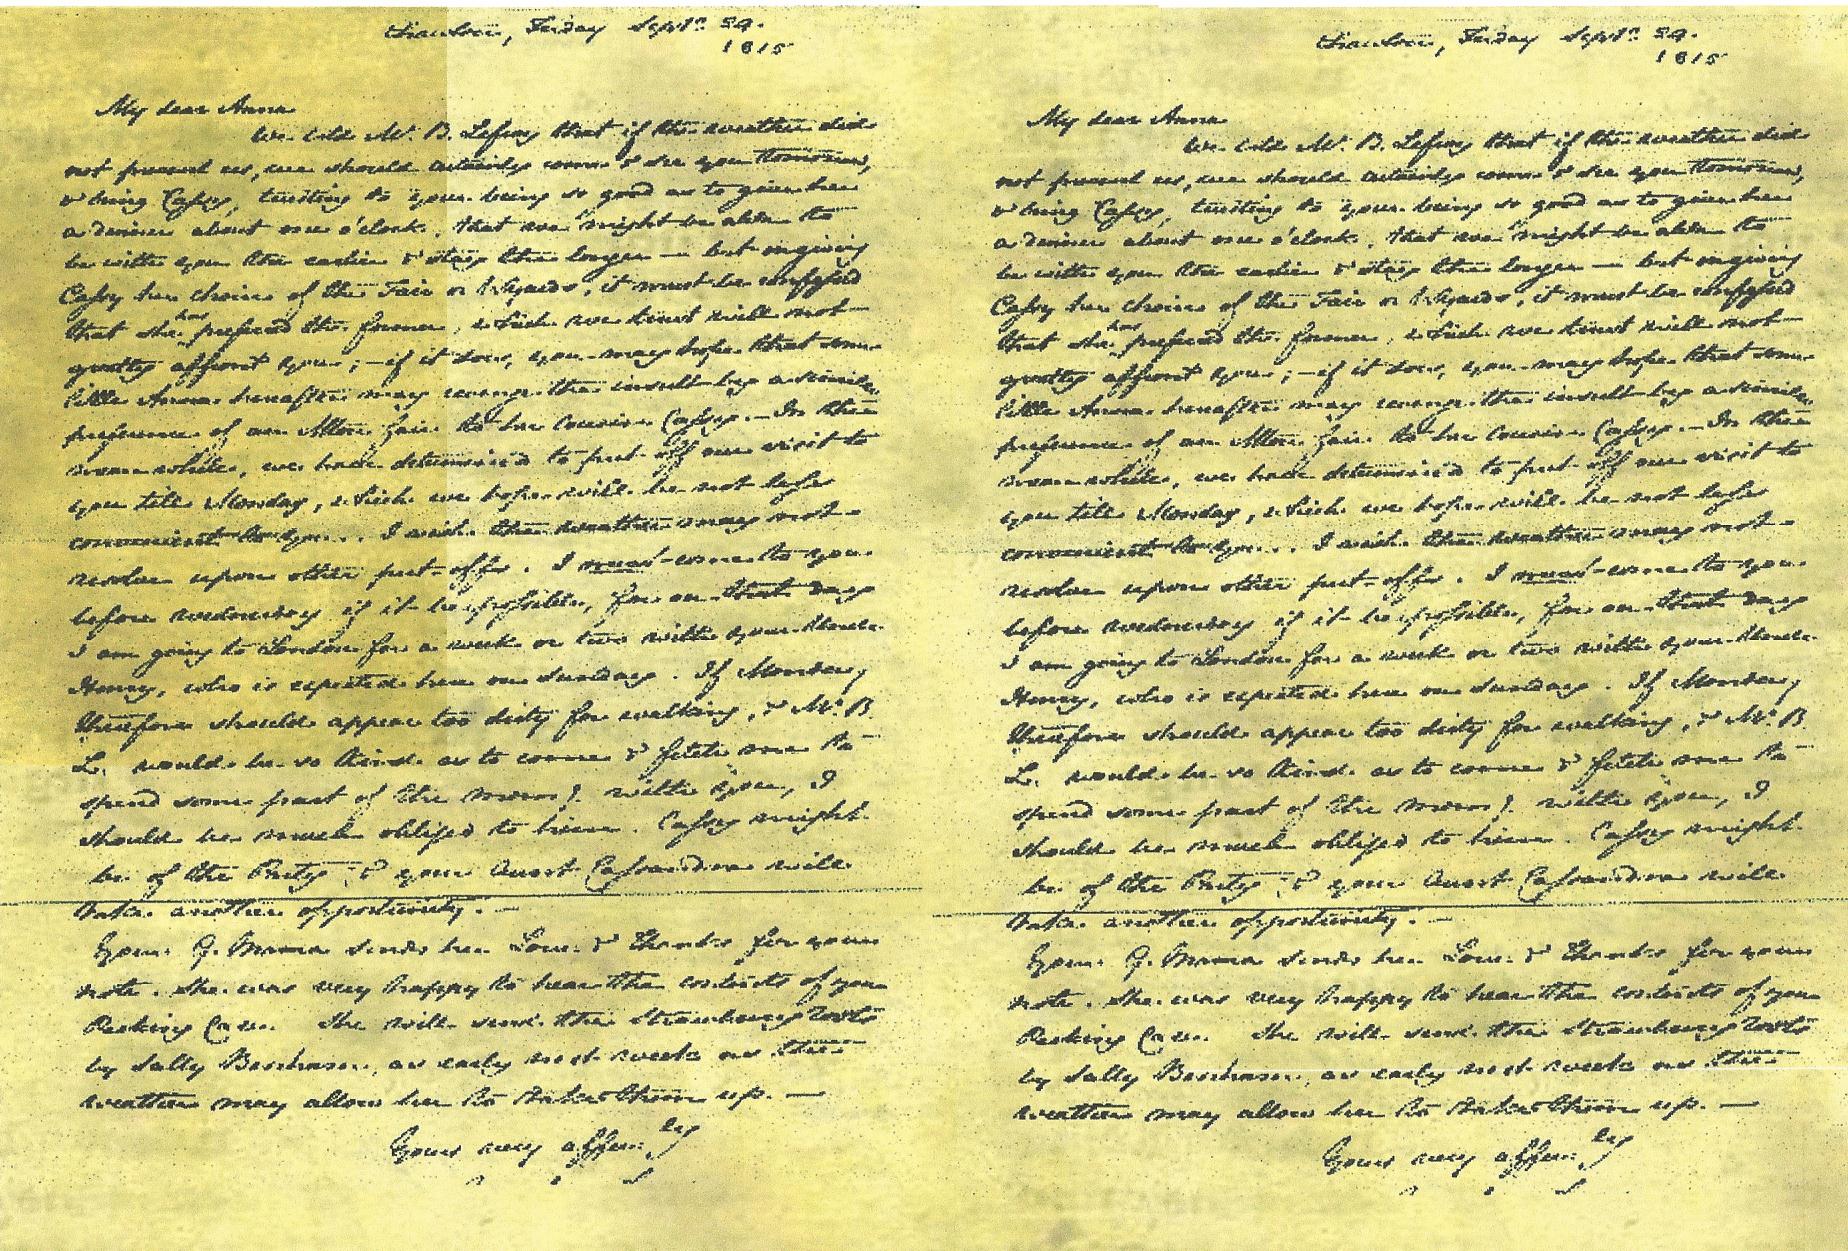 Chawton, Friday Septr. 29.
1815
My dear Anna
We told Mr. B. Lefroy that if the weather did
not prevent us, we should certainly come & see you tomorrow,
& bring Cassy, trusting to your being so good as to give her
a dinner about one o'clock, that we might be able to
be with you the earlier & stay the longer — but on giving
Cassy her choice of the Fair or Wyards, it must be confessed
that she has preferred the former, which we trust will not
greatly affront you; — if it does, you may hope that some
little Anna hereafter may revenge the insult by a similar
preference of an Alton fair to her Cousin Cassy. — In the
mean while, we have determined to put off our visit to
you till Monday, which we hope will be not less
convenient to you. I wish the weather may not
resolve upon other put-offs. I must come to you
before wednesday if it be possible, for on that day
I am going to London for a week or two with your Uncle
Henry, who is expected here on Sunday. If Monday
therefore should appear too dirty for walking, & Mr. B.
L. would be so kind as to come & fetch me to
spend some part of the morng. with you, I
should be much obliged to him. Cassy might
be of the Party, & your Aunt Cassandra will
take another opportunity. —
Your G. Mama sends her Love & Thanks for your
note. She was very happy to hear the contents of your
Packing Case. She will send the Strawberry roots
by Sally Benham, as early next week as the
weather may allow her to take them up. —
Yours very affec:ly
Chawton, Friday Septr. 29.
1815
My dear Anna
We told Mr. B. Lefroy that if the weather did
not prevent us, we should certainly come & see you tomorrow,
& bring Cassy, trusting to your being so good as to give her
a dinner about one o'clock, that we might be able to
be with you the earlier & stay the longer — but on giving
Cassy her choice of the Fair or Wyards, it must be confessed
that she has preferred the former, which we trust will not
greatly affront you; — if it does, you may hope that some
little Anna hereafter may revenge the insult by a similar
preference of an Alton fair to her Cousin Cassy. — In the
mean while, we have determined to put off our visit to
you till Monday, which we hope will be not less
convenient to you. I wish the weather may not
resolve upon other put-offs. I must come to you
before wednesday if it be possible, for on that day
I am going to London for a week or two with your Uncle
Henry, who is expected here on Sunday. If Monday
therefore should appear too dirty for walking, & Mr. B.
L. would be so kind as to come & fetch me to
spend some part of the morng. with you, I
should be much obliged to him. Cassy might
be of the Party, & your Aunt Cassandra will
take another opportunity. —
Your G. Mama sends her Love & Thanks for your
note. She was very happy to hear the contents of your
Packing Case. She will send the Strawberry roots
by Sally Benham, as early next week as the
weather may allow her to take them up. —
Yours very affec:ly